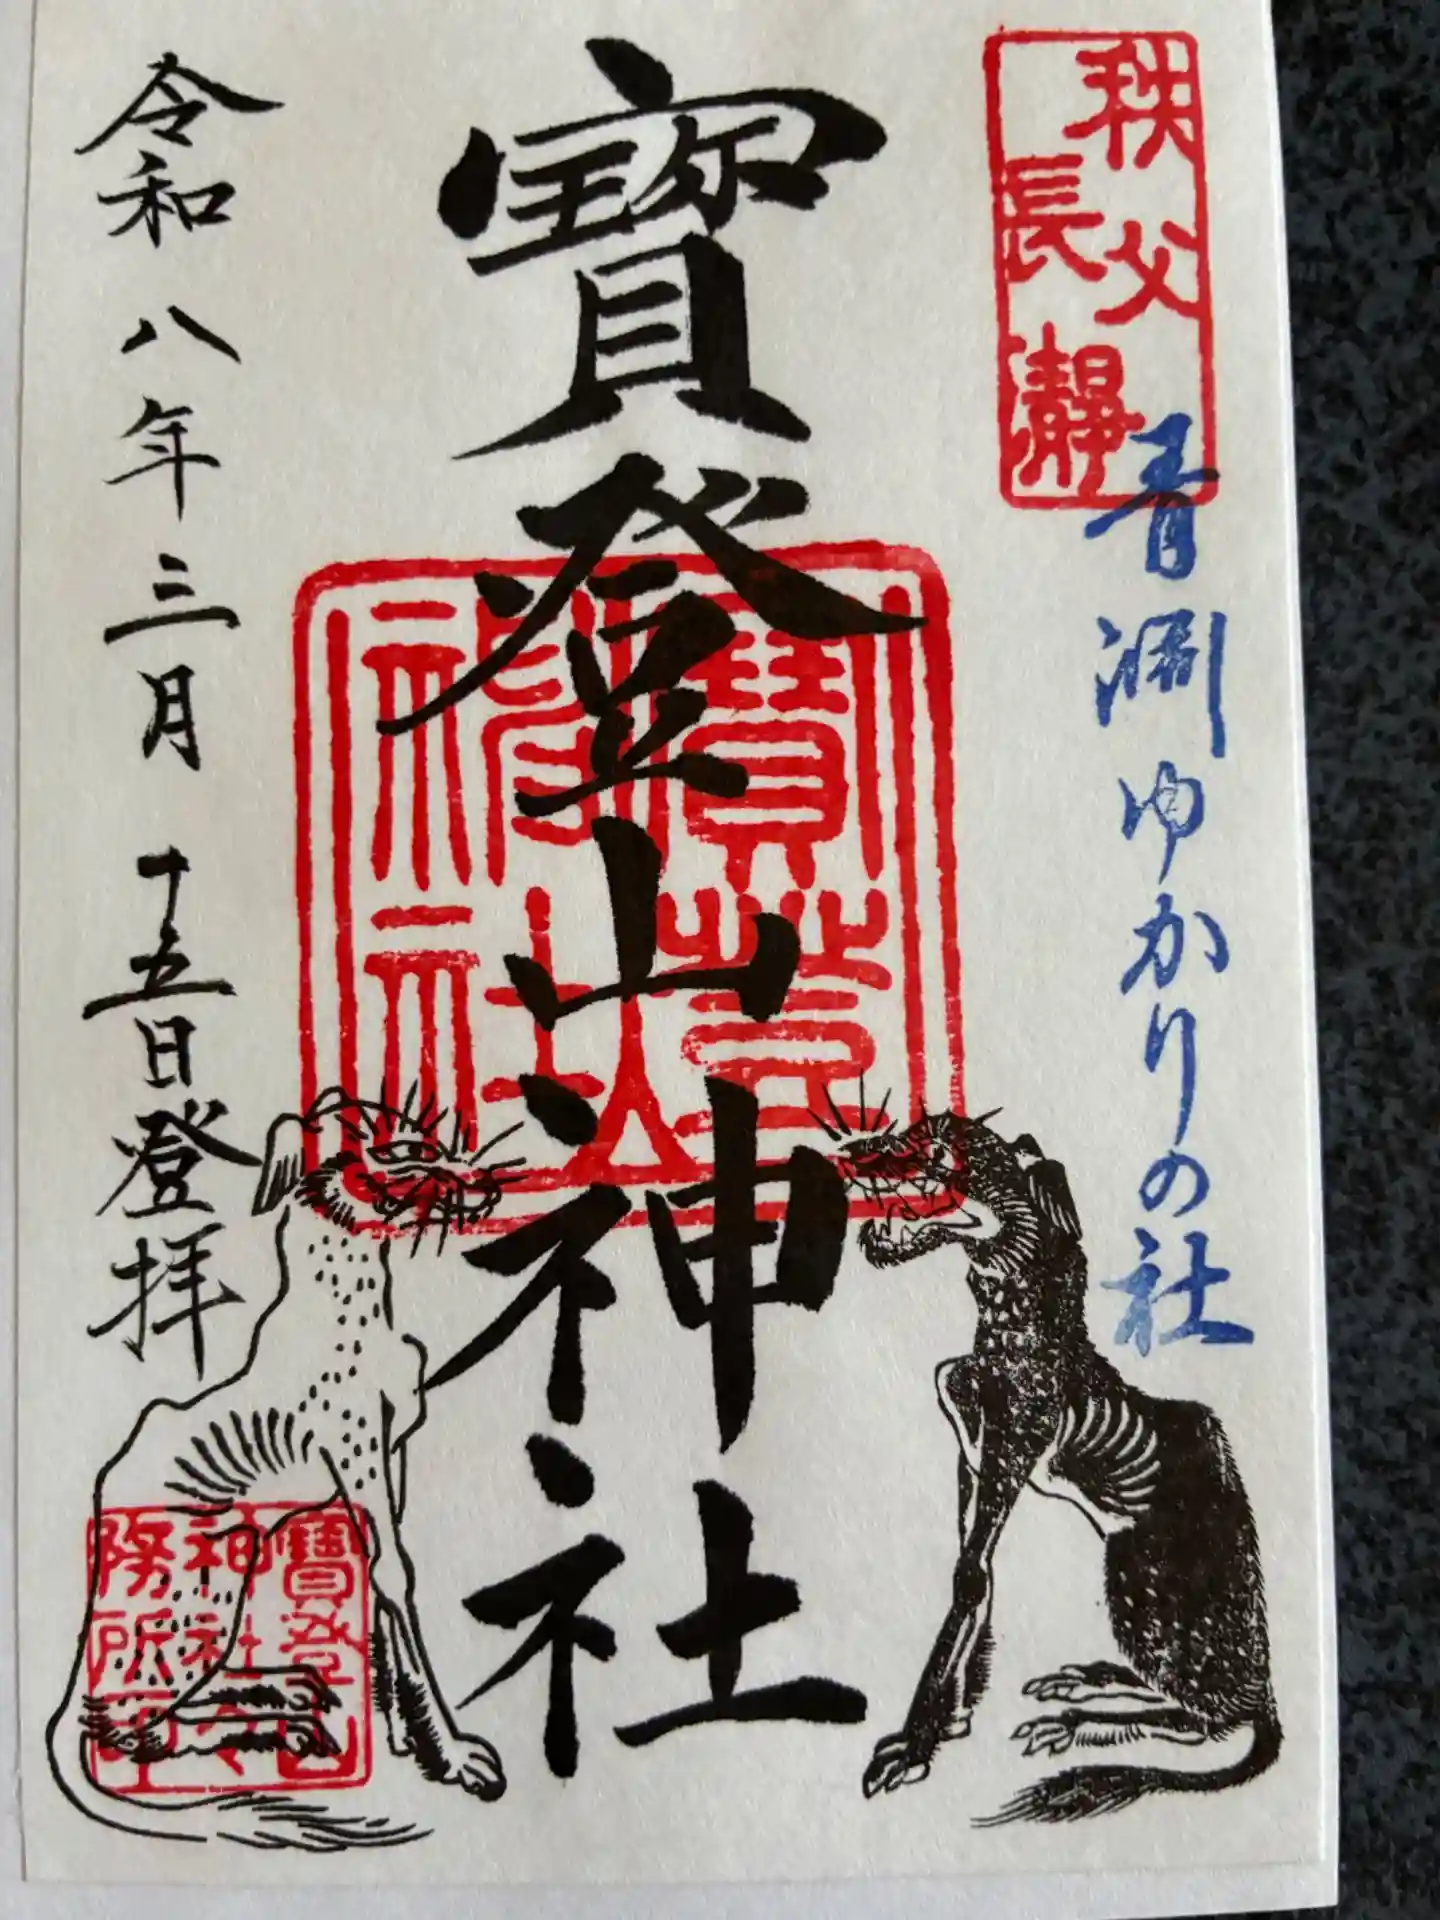 秩父
長瀞
青淵ゆかりの社
寳登山神社
寳登
山神社
令和八年三月十五日登拝
寳登山
神社
務所